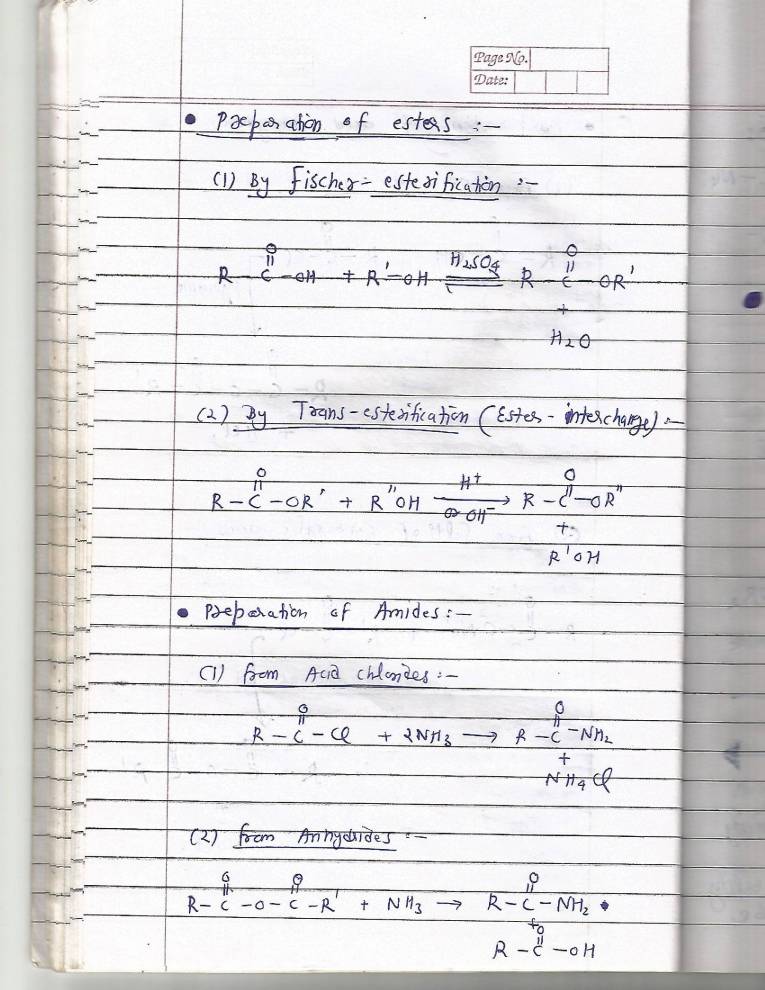 Page No.
Date:
• Preparation of esters :-
(1) By Fischer - esterification :-
O
||
R - C - OH + R' - OH ⇌ H2SO4 R - C - OR'
O
||
+
H2O
(2) By Trans-esterification (Ester - interchange) :-
O
||
R - C - OR' + R''OH → H+ or OH- R - C - OR''
O
||
+
R'OH
• Preparation of Amides :-
(1) from Acid chlorides :-
O
||
R - C - Cl + 2NH3 → R - C - NH2
O
||
+
NH4Cl
(2) from Anhydrides :-
O O O
|| || ||
R - C - O - C - R' + NH3 → R - C - NH2
+
O
||
R - C - OH